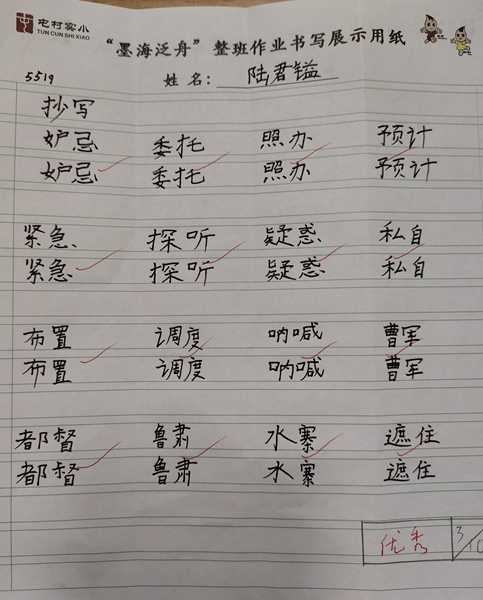 屯村实小
TUN CUN SHI XIAO
“墨海泛舟”整班作业书写展示用纸
5519
姓名：陆君镒
抄写
妒忌 委托 照办 预计
妒忌 委托 照办 预计
紧急 探听 疑惑 私自
紧急 探听 疑惑 私自
布置 调度 呐喊 曹军
布置 调度 呐喊 曹军
都督 鲁肃 水寨 遮住
都督 鲁肃 水寨 遮住
优秀 3/10